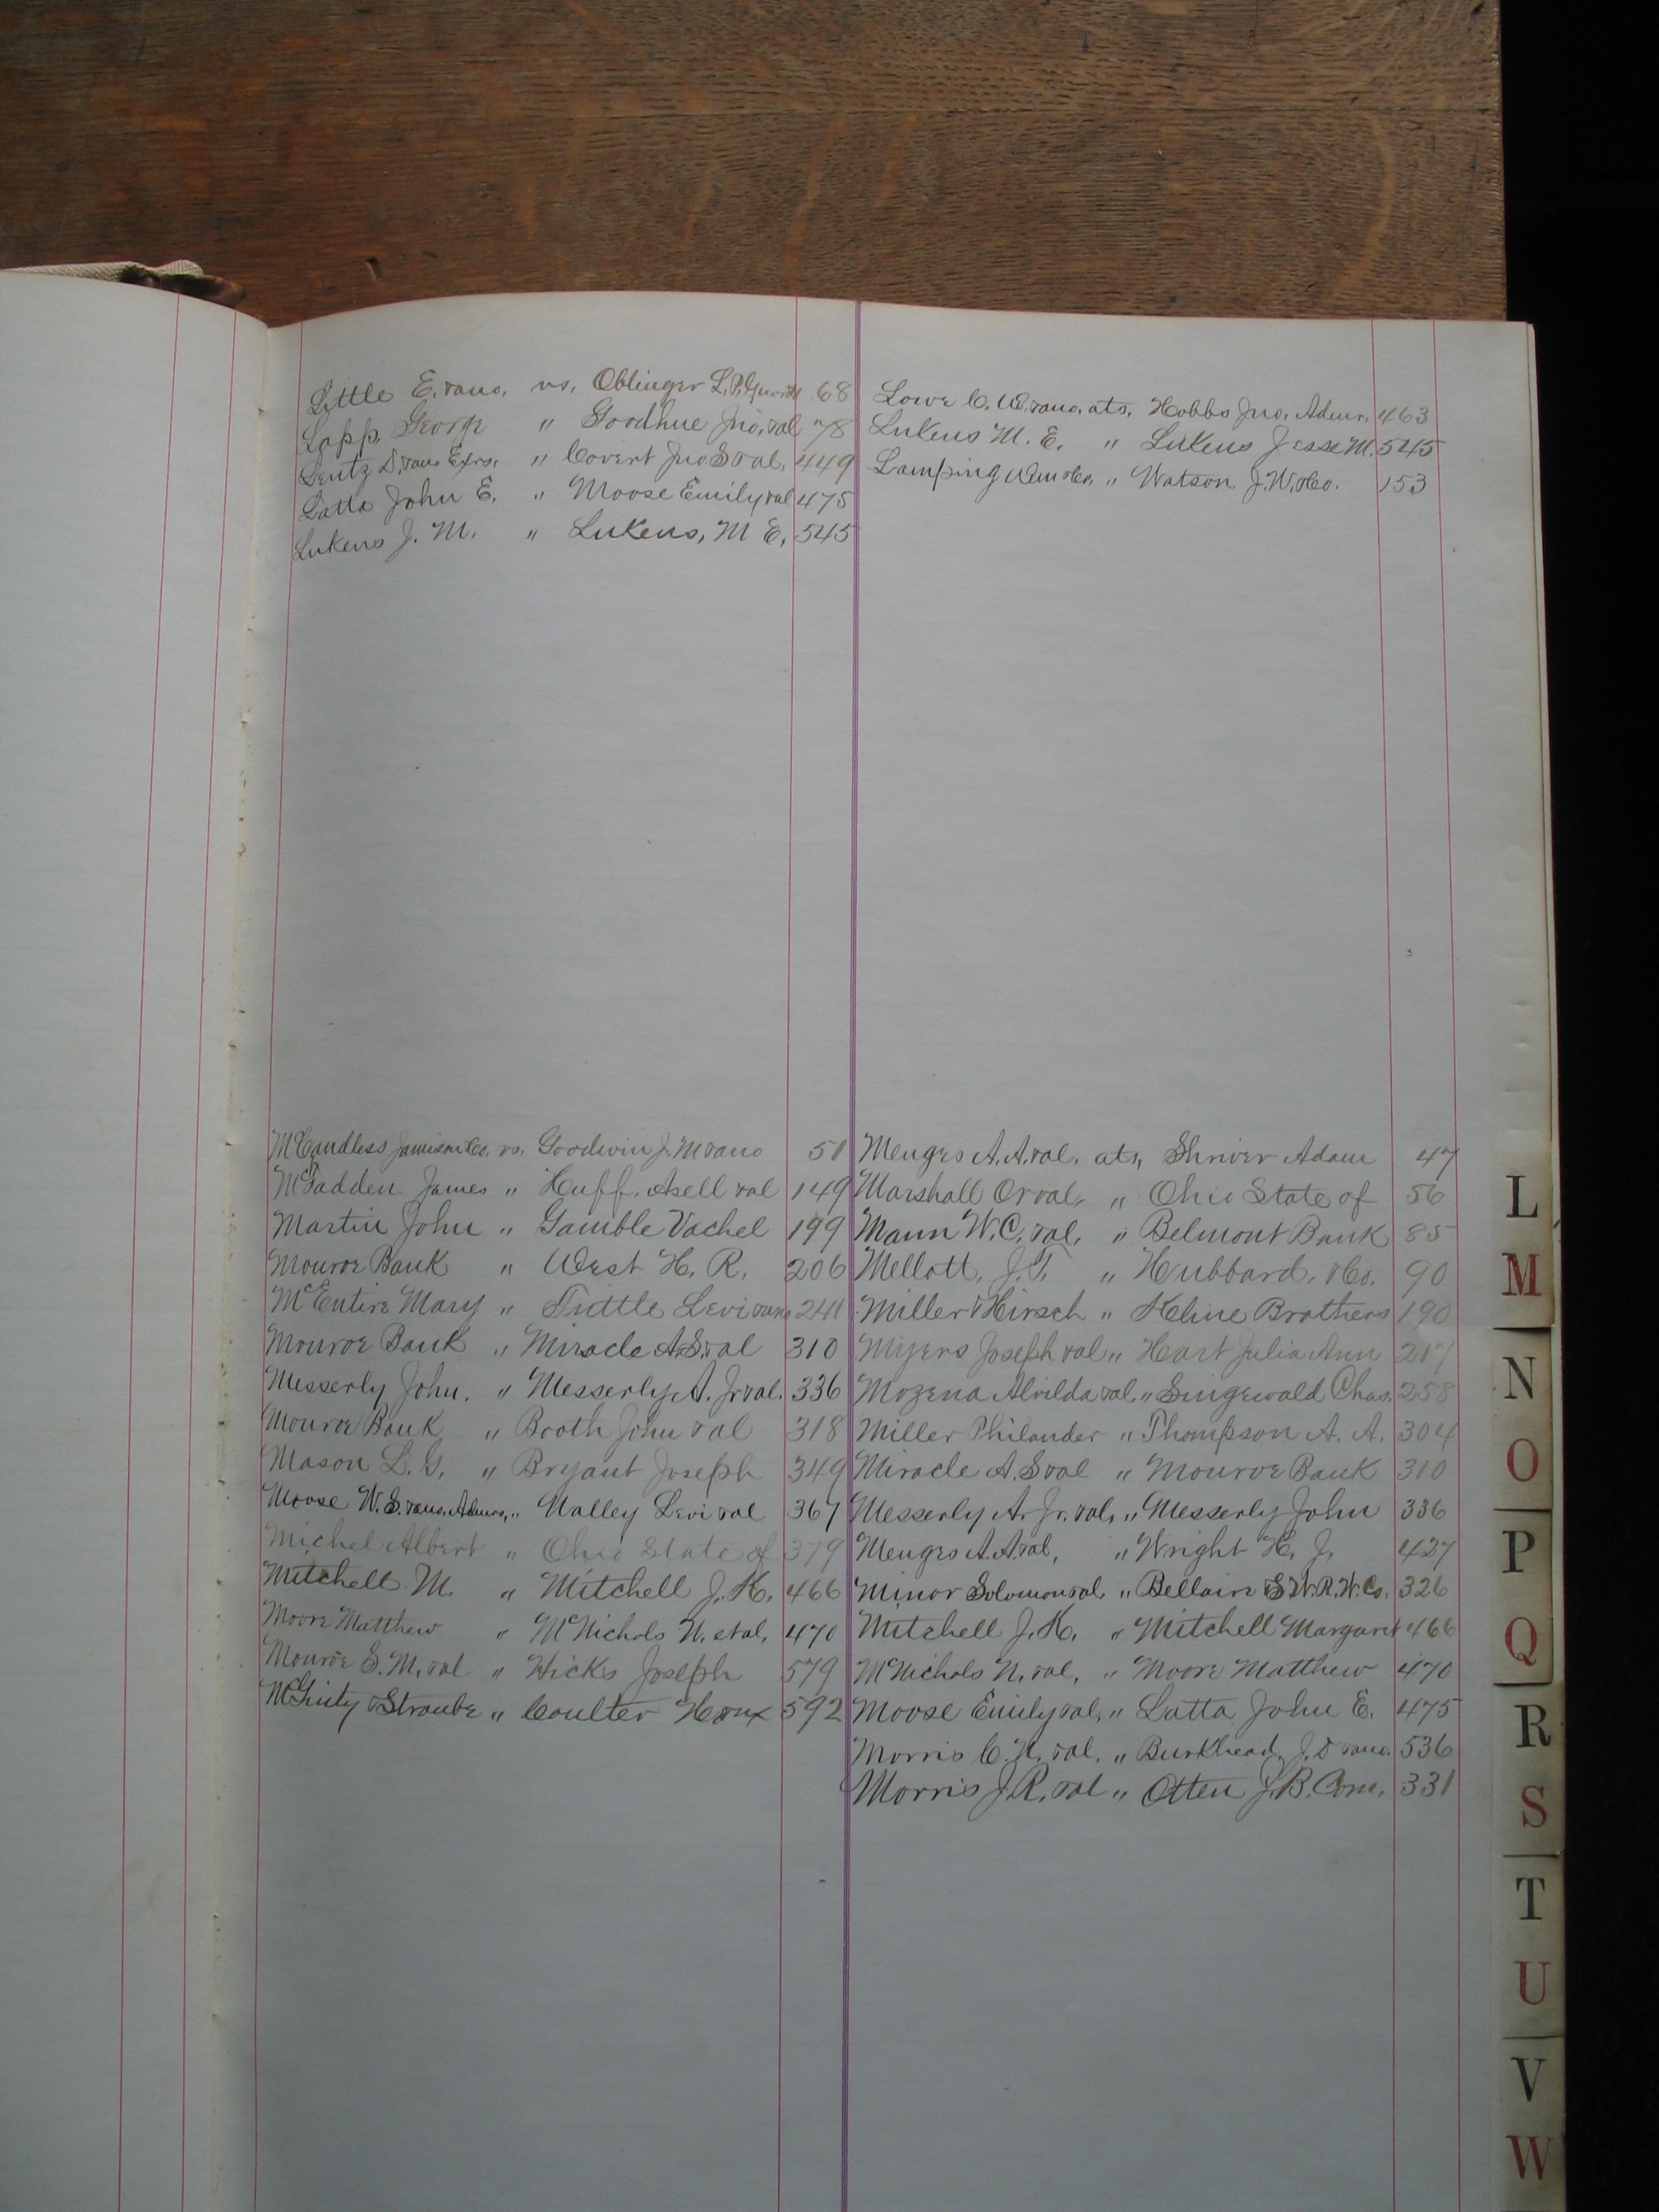 Little E. vs. Oblinger L.P. 68
Lapp George " Goodhue Jno. 78
Lentz D. Exrs. " Covert Jno S 449
Latta John E. " Moose Emily 475
Lukens J. M. " Lukens, M E, 545
Lowe C. W. ats. Hobbs Jno. Admr. 463
Lukens M. E. " Lukens Jesse M. 545
Lamping Wm &Co. " Watson J. W. &Co. 153
McCandless Jamison Co. vs. Goodwin J. M 51
McFadden James " Huff. Asell 149
Martin John " Gamble Vachel 199
Monroe Bank " West H. R. 206
McEntire Mary " Tuttle Levi 241
Monroe Bank " Miracle A.S. 310
Messerly John. " Messerly A. Jr 336
Monroe Bank " Broth John 318
Mason L. G. " Bryant Joseph 349
Moose W. S. Admrs. " Nalley Levi 367
Michel Albert " Ohio State of 379
Mitchell M. " Mitchell J. K. 466
Moore Matthew " McNichols N. et al. 470
Monroe S. M. " Hicks Joseph 579
McGinty & Straube " Coulter 592
Menges A. A. ats, Shriver Adam 47
Marshall O " Ohio State of 56
Mann W. C. " Belmont Bank 85
Mellott, J. T. " Hubbard, &Co. 90
Miller & Hirsch " Kline Brothers 190
Myers Joseph " Hart Julia Ann 217
Mozena Alvilda " Singewald Chas. 258
Miller Philander " Thompson A. A. 304
Miracle A. S " Monroe Bank 310
Messerly A. Jr. " Messerly John 336
Menges A. A. " Wright H. J. 427
Minor Solomon " Bellaire & S. W. R. W. Co. 326
Mitchell J. K. " Mitchell Margaret 466
McNichols N. " Moore Matthew 470
Moose Emily " Latta John E. 475
Morris C. N. " Burkhead, J. D 536
Morris J. R. " Otten J. B. Com. 331
L
M
N
O
P
Q
R
S
T
U
V
W